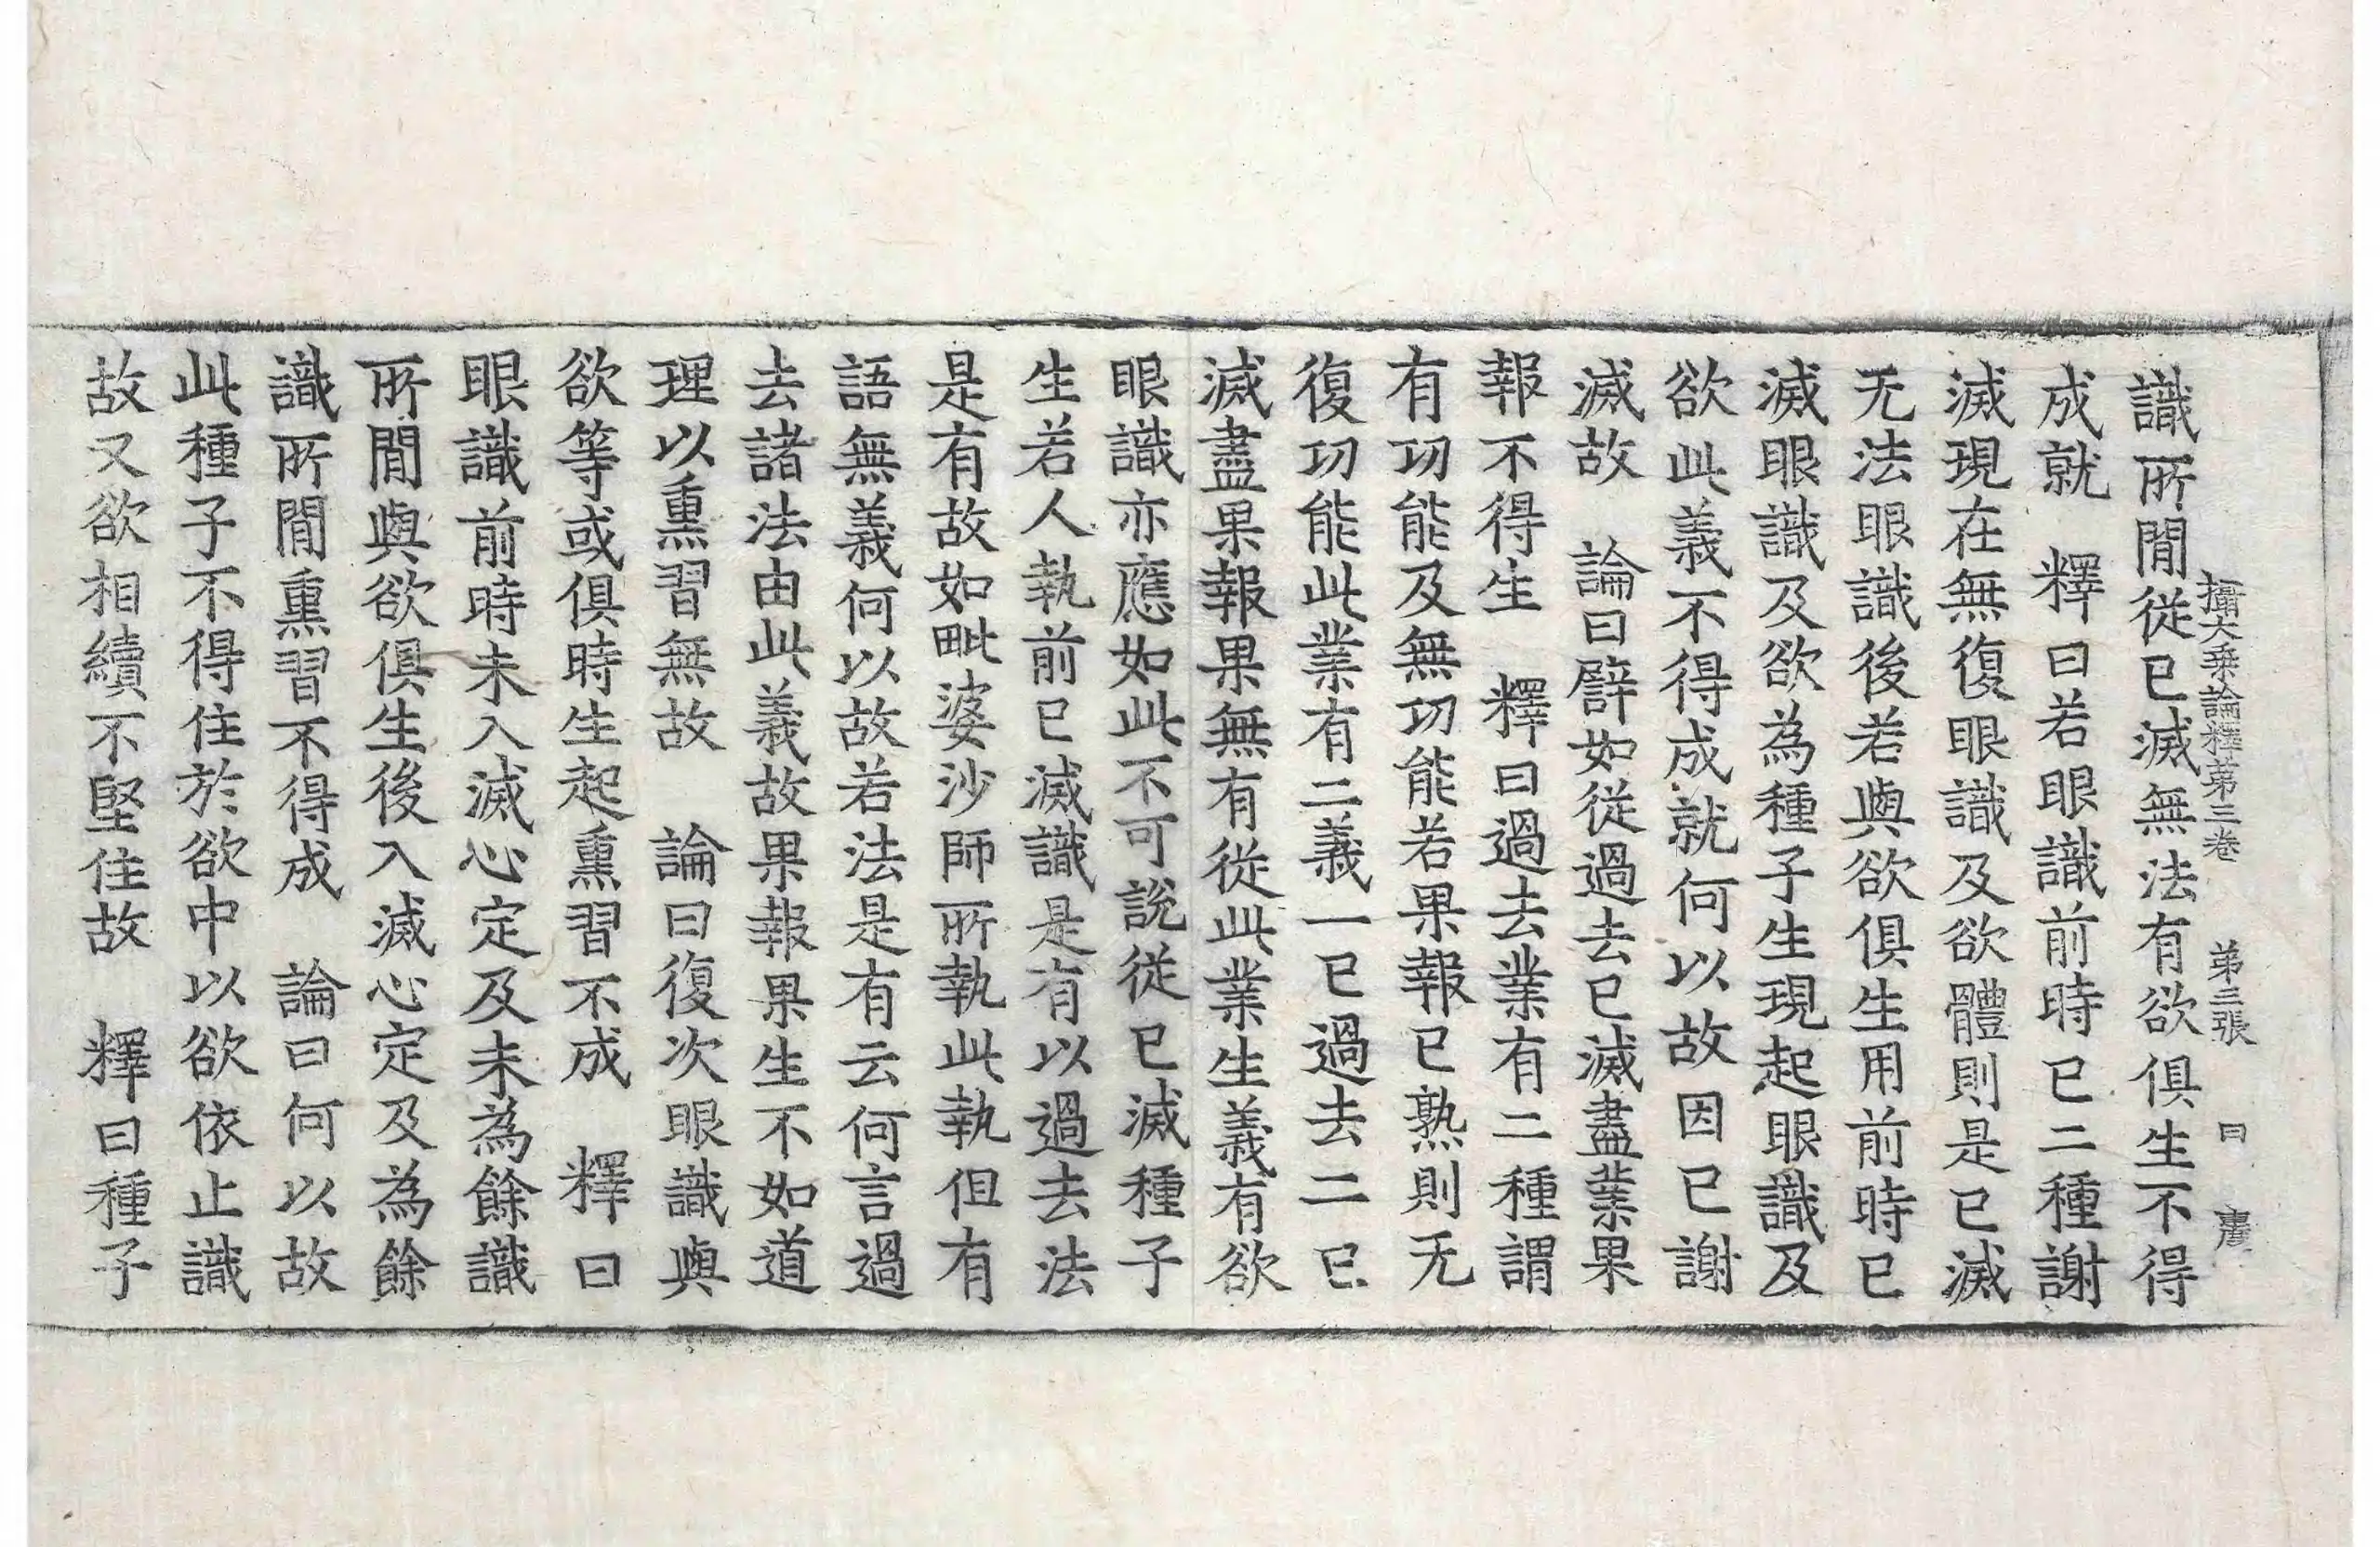 攝大乗論釋第三卷 第三張 曰 
識所閒從已滅無法有欲俱生不得
成就 釋曰若眼識前時已二種謝
滅現在無復眼識及欲體則是已滅
无法眼識後若與欲俱生用前時已
滅眼識及欲為種子生現起眼識及
欲此義不得成就何以故因已謝
滅故 論曰譬如從過去已滅盡業果
報不得生 釋曰過去業有二種謂
有功能及無功能若果報已熟則无
復功能此業有二義一已過去二已
滅盡果報果無有從此業生義有欲
眼識亦應如此不可說從已滅種子
生若人執前已滅識是有以過去法
是有故如毗婆沙師所執此執但有
語無義何以故若法是有云何言過
去諸法由此義故果報果生不如道
理以熏習無故 論曰復次眼識與
欲等或俱時生起熏習不成 釋曰
眼識前時未入滅心定及未為餘識
所閒與欲俱生後入滅心定及為餘
識所閒熏習不得成 論曰何以故
此種子不得住於欲中以欲依止識
故又欲相續不堅住故 釋曰種子